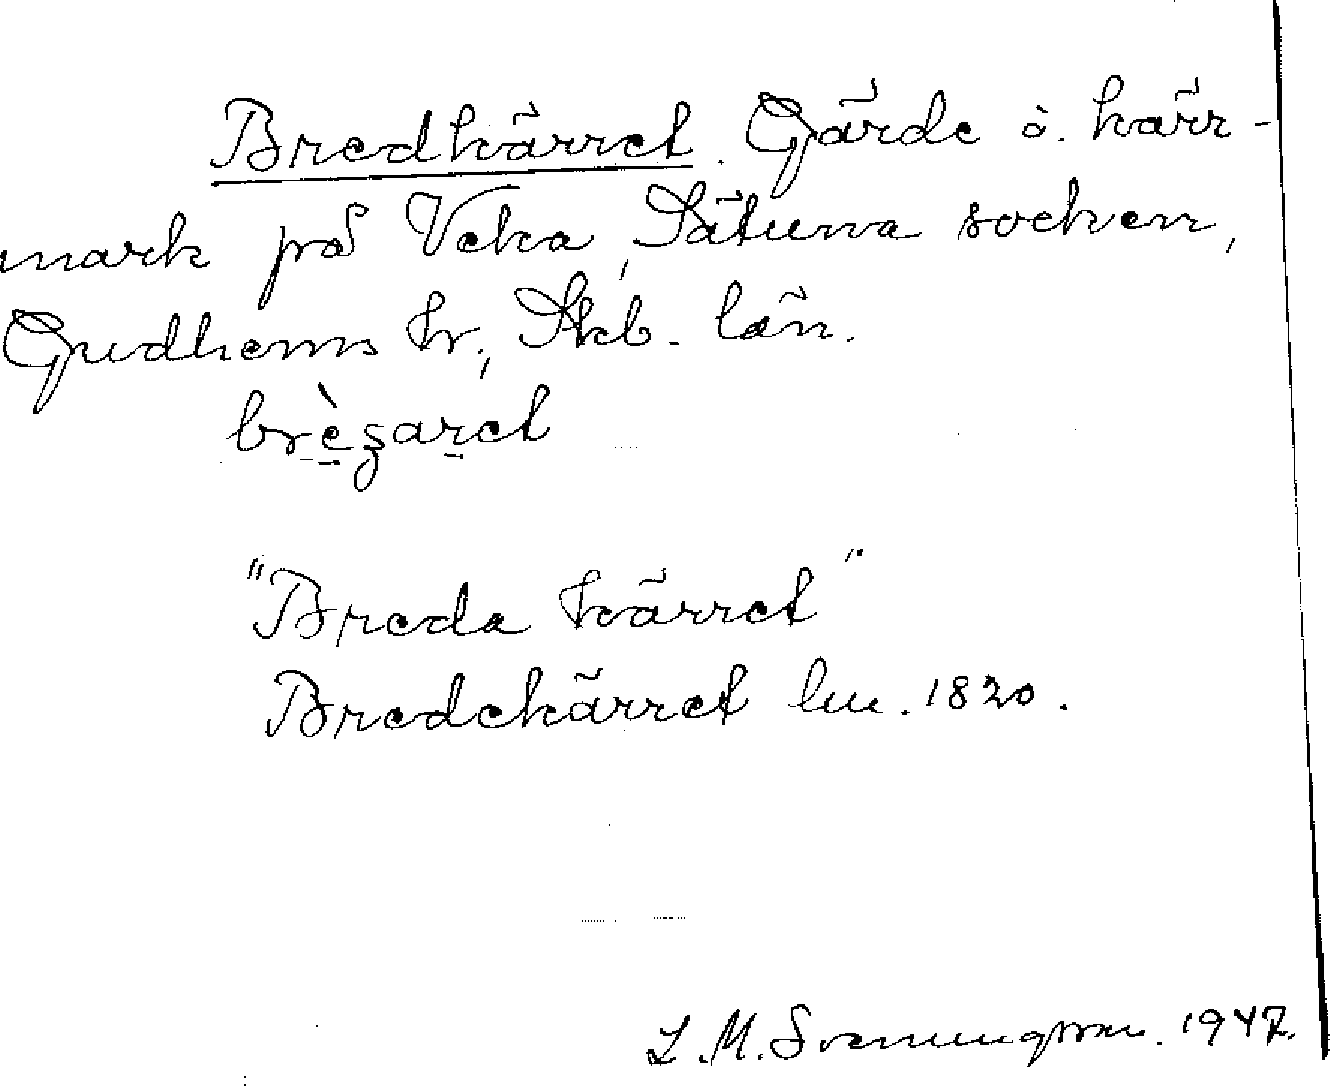 Bredkärret. Gärde o. kärr-
mark på Veka, Sätuna socken,
Gudhems hr, Skb. län.
brèʒaret
"Breda kärret"
Bredekärret lm. 1820.
L. M. Svenungsson. 1947.